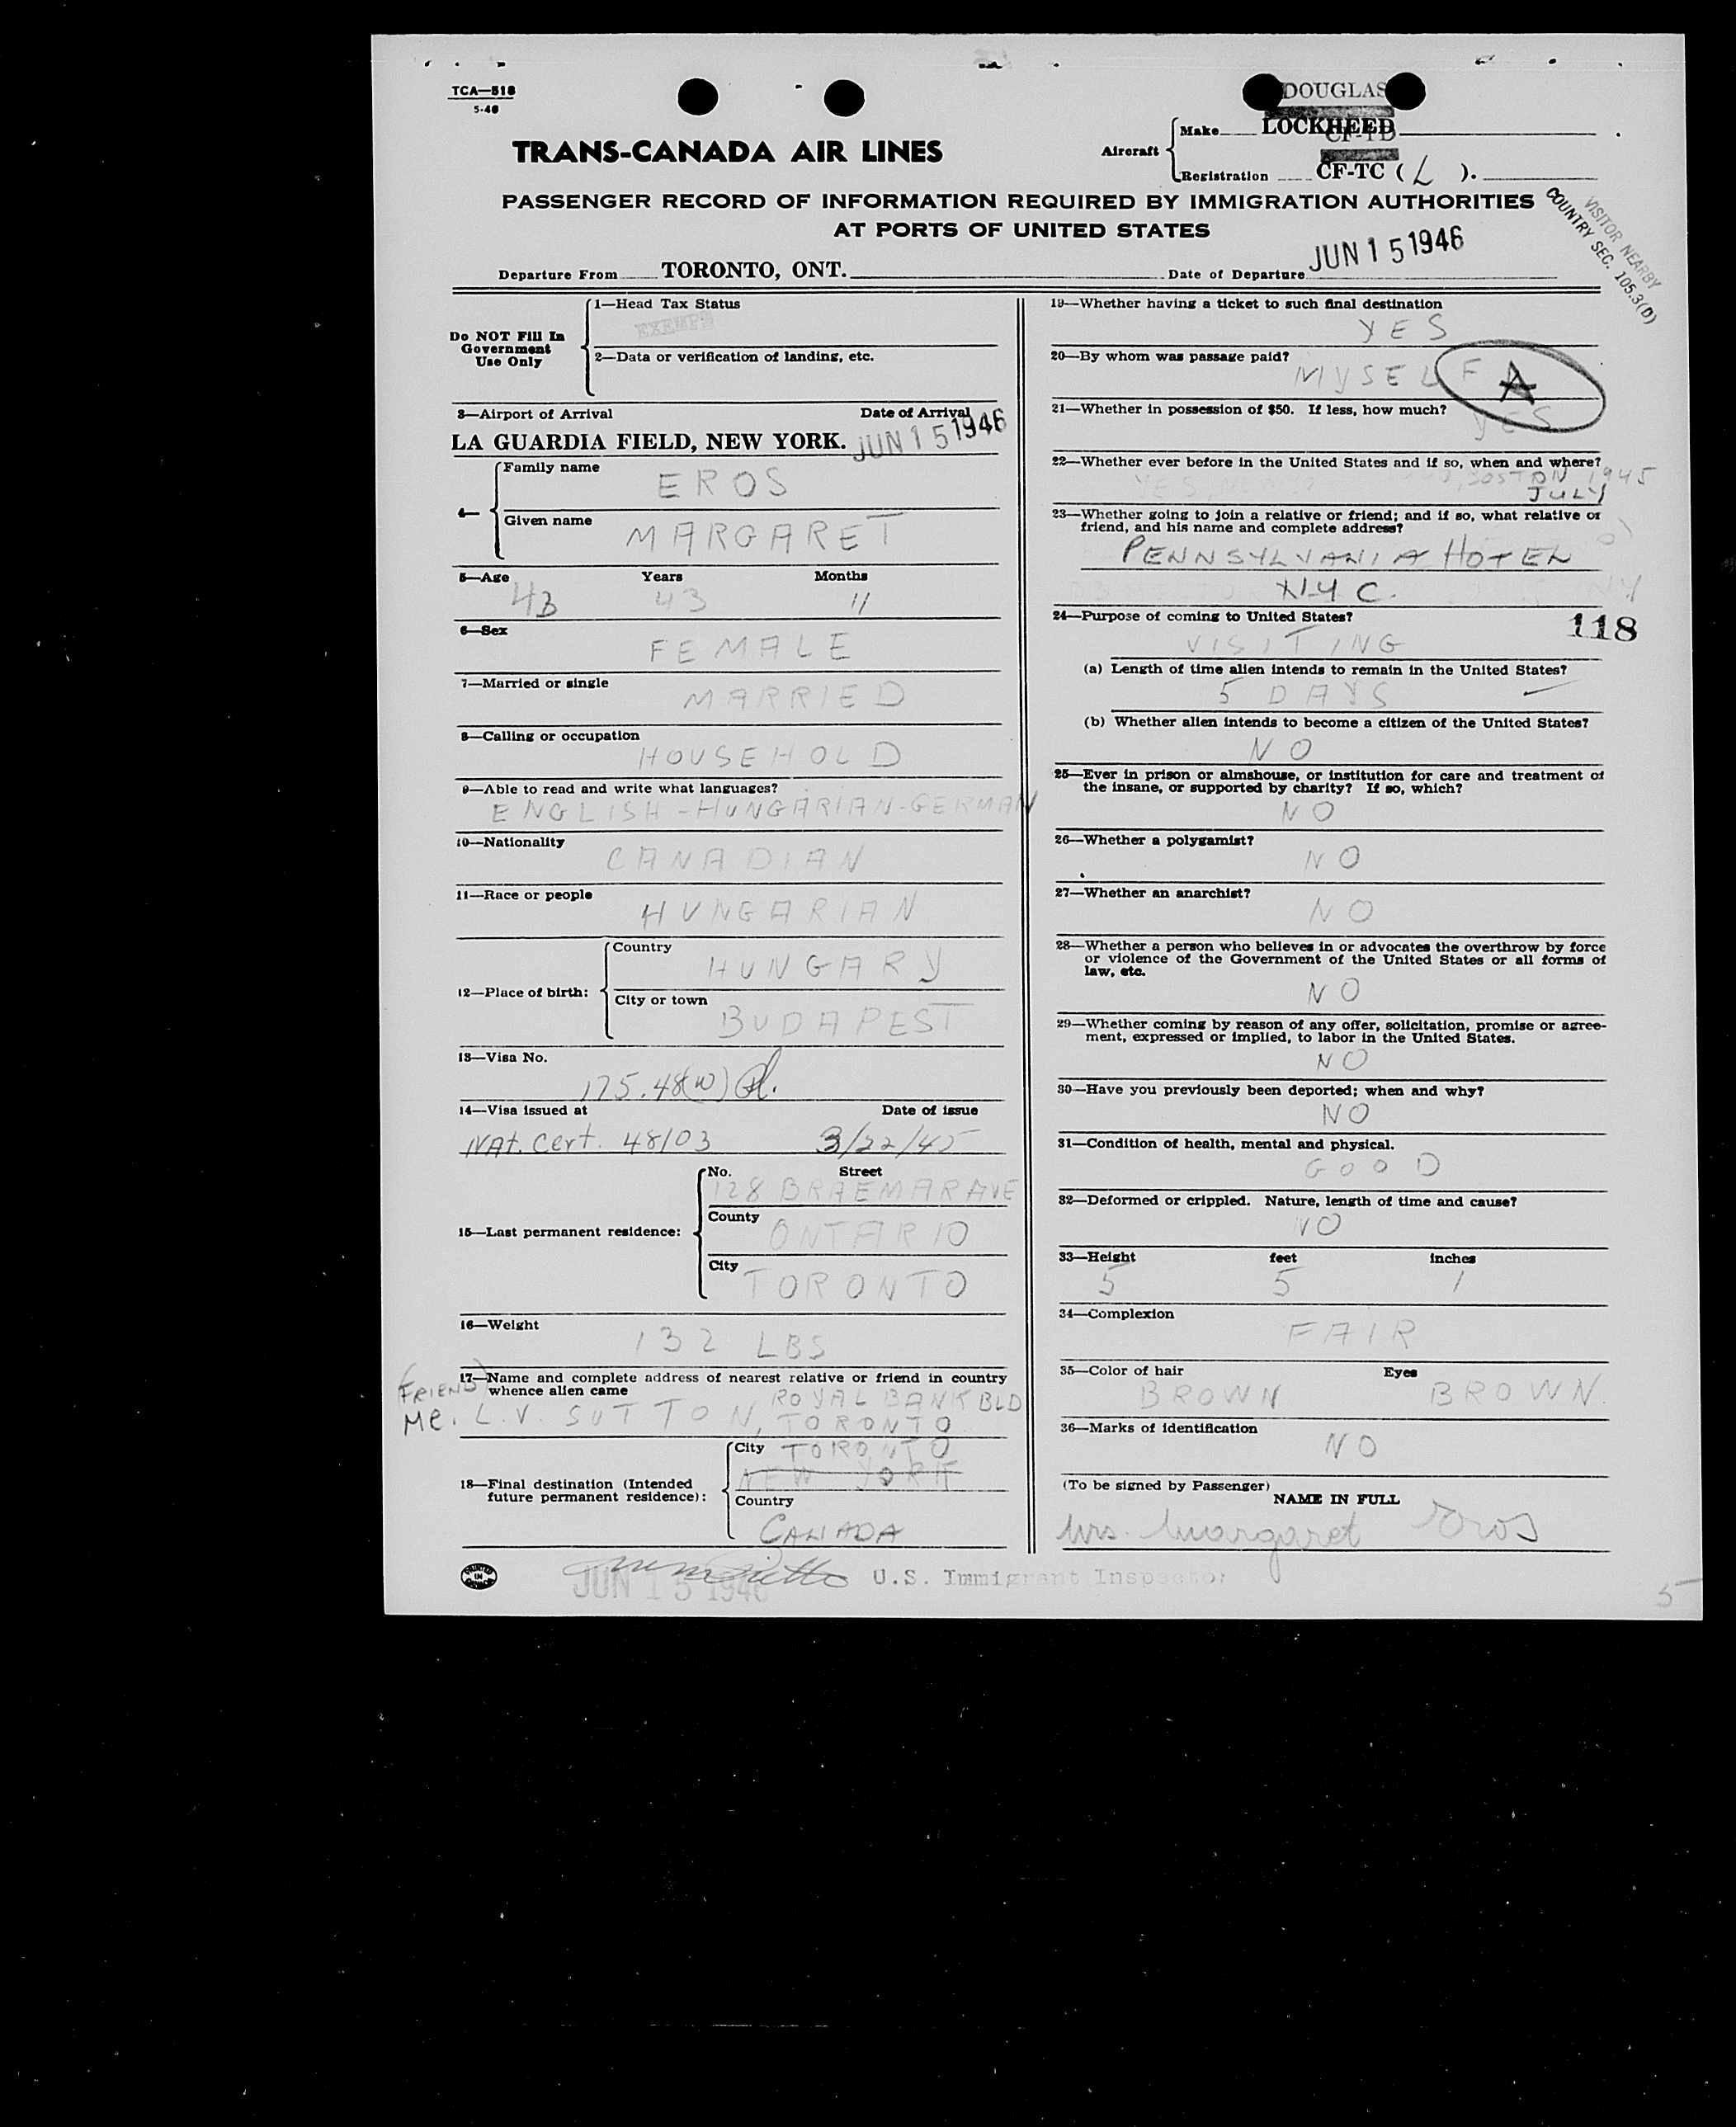 TCA—518
5-46
DOUGLAS
TRANS-CANADA AIR LINES
Aircraft
Make LOCKHEED
CF-TD
Registration CF-TC ( L ).
PASSENGER RECORD OF INFORMATION REQUIRED BY IMMIGRATION AUTHORITIES
AT PORTS OF UNITED STATES
VISITOR NEARBY
COUNTRY SEC. 105.3(D)
Departure From TORONTO, ONT. Date of Departure JUN 15 1946
Do NOT Fill In
Government
Use Only
1—Head Tax Status
EXEMPT
2—Data or verification of landing, etc.
3—Airport of Arrival Date of Arrival
LA GUARDIA FIELD, NEW YORK. JUN 15 1946
4—
Family name
EROS
Given name
MARGARET
5—Age Years Months
43 43 11
6—Sex
FEMALE
7—Married or single
MARRIED
8—Calling or occupation
HOUSEHOLD
9—Able to read and write what languages?
ENGLISH-HUNGARIAN-GERMAN
10—Nationality
CANADIAN
11—Race or people
HUNGARIAN
12—Place of birth:
Country
HUNGARY
City or town
BUDAPEST
13—Visa No.
175.48(w)
14—Visa issued at Date of issue
NAt. Cert. 48103 3/22/45
15—Last permanent residence:
No. Street
128 BRAEMAR AVE
County
ONTARIO
City
TORONTO
16—Weight
132 LBS
17—Name and complete address of nearest relative or friend in country
whence alien came
(FRIEND)
ROYAL BANK BLD
MR. L.V. SUTTON, TORONTO
18—Final destination (Intended
future permanent residence):
City TORONTO
NEW YORK
Country
CANADA
19—Whether having a ticket to such final destination
YES
20—By whom was passage paid?
MYSELF
A
21—Whether in possession of $50. If less, how much?
YES
22—Whether ever before in the United States and if so, when and where?
YES, BOSTON 1945
JULY
23—Whether going to join a relative or friend; and if so, what relative or
friend, and his name and complete address?
PENNSYLVANIA HOTEL
N.Y.C.
24—Purpose of coming to United States?
118
VISITING
(a) Length of time alien intends to remain in the United States?
5 DAYS
(b) Whether alien intends to become a citizen of the United States?
NO
25—Ever in prison or almshouse, or institution for care and treatment of
the insane, or supported by charity? If so, which?
NO
26—Whether a polygamist?
NO
27—Whether an anarchist?
NO
28—Whether a person who believes in or advocates the overthrow by force
or violence of the Government of the United States or all forms of
law, etc.
NO
29—Whether coming by reason of any offer, solicitation, promise or agree-
ment, expressed or implied, to labor in the United States.
NO
30—Have you previously been deported; when and why?
NO
31—Condition of health, mental and physical.
GOOD
32—Deformed or crippled. Nature, length of time and cause?
NO
33—Height feet inches
5 5 1
34—Complexion
FAIR
35—Color of hair Eyes
BROWN BROWN
36—Marks of identification
NO
(To be signed by Passenger)
NAME IN FULL
Mrs. Margaret Eros
JUN 15 1946
U.S. Immigrant Inspector
PRINTED IN CANADA
5